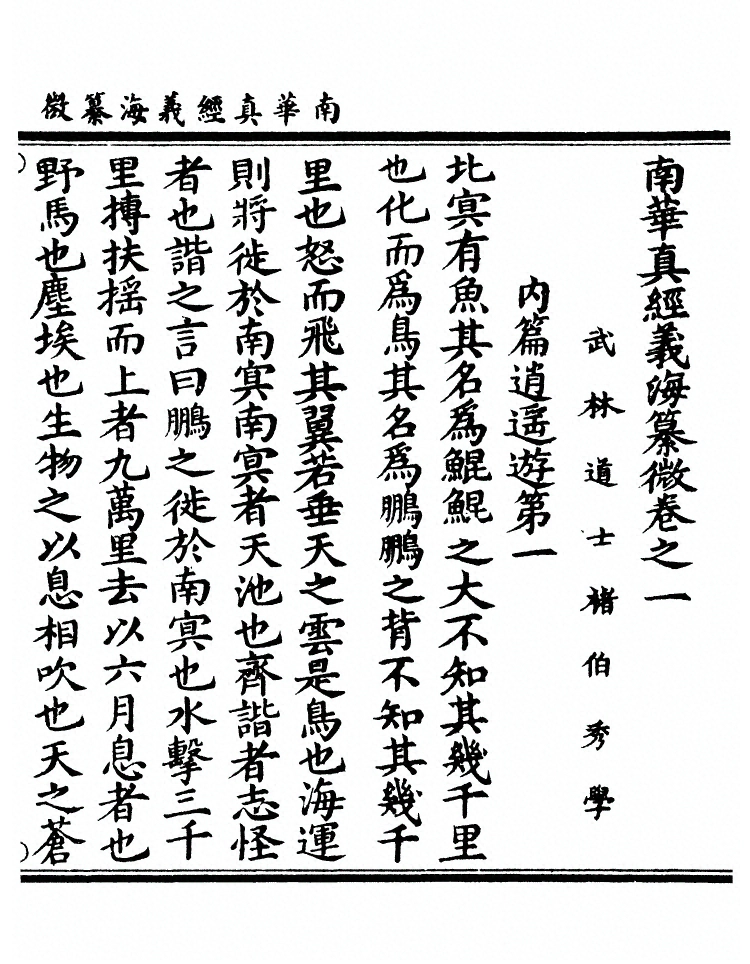 南華真經義海纂微
南華真經義海纂微卷之一
武林道士褚伯秀學
内篇逍遥遊第一
北㝠有魚其名爲鯤鯤之大不知其幾千里
也化而爲鳥其名爲鵬鵬之背不知其幾千
里也怒而飛其翼若垂天之雲是鳥也海運
則將徙於南㝠南㝠者天池也齊諧者志怪
者也諧之言曰鵬之徙於南㝠也水擊三千
里摶扶揺而上者九萬里去以六月息者也
野馬也塵埃也生物之以息相吹也天之蒼